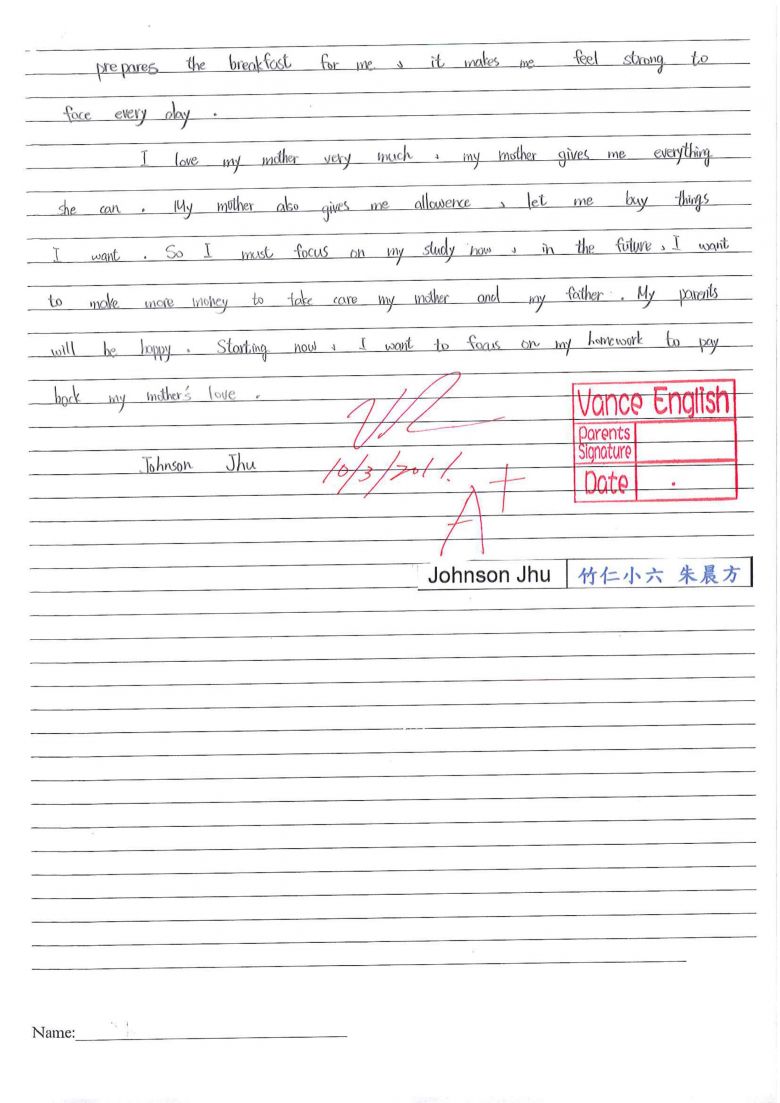 prepares the breakfast for me, it makes me feel strong to
face every day.
I love my mother very much, my mother gives me everything
she can. My mother also gives me allowence, let me buy things
I want. So I must focus on my study now, in the future, I want
to make more money to take care my mother and my father. My parents
will be happy. Starting now, I want to focus on my homework to pay
back my mother's love.
Vance English
Parents
Signature
Johnson Jhu
10/3/2011.
Date
A+
Johnson Jhu
竹仁小六 朱晨方
Name: